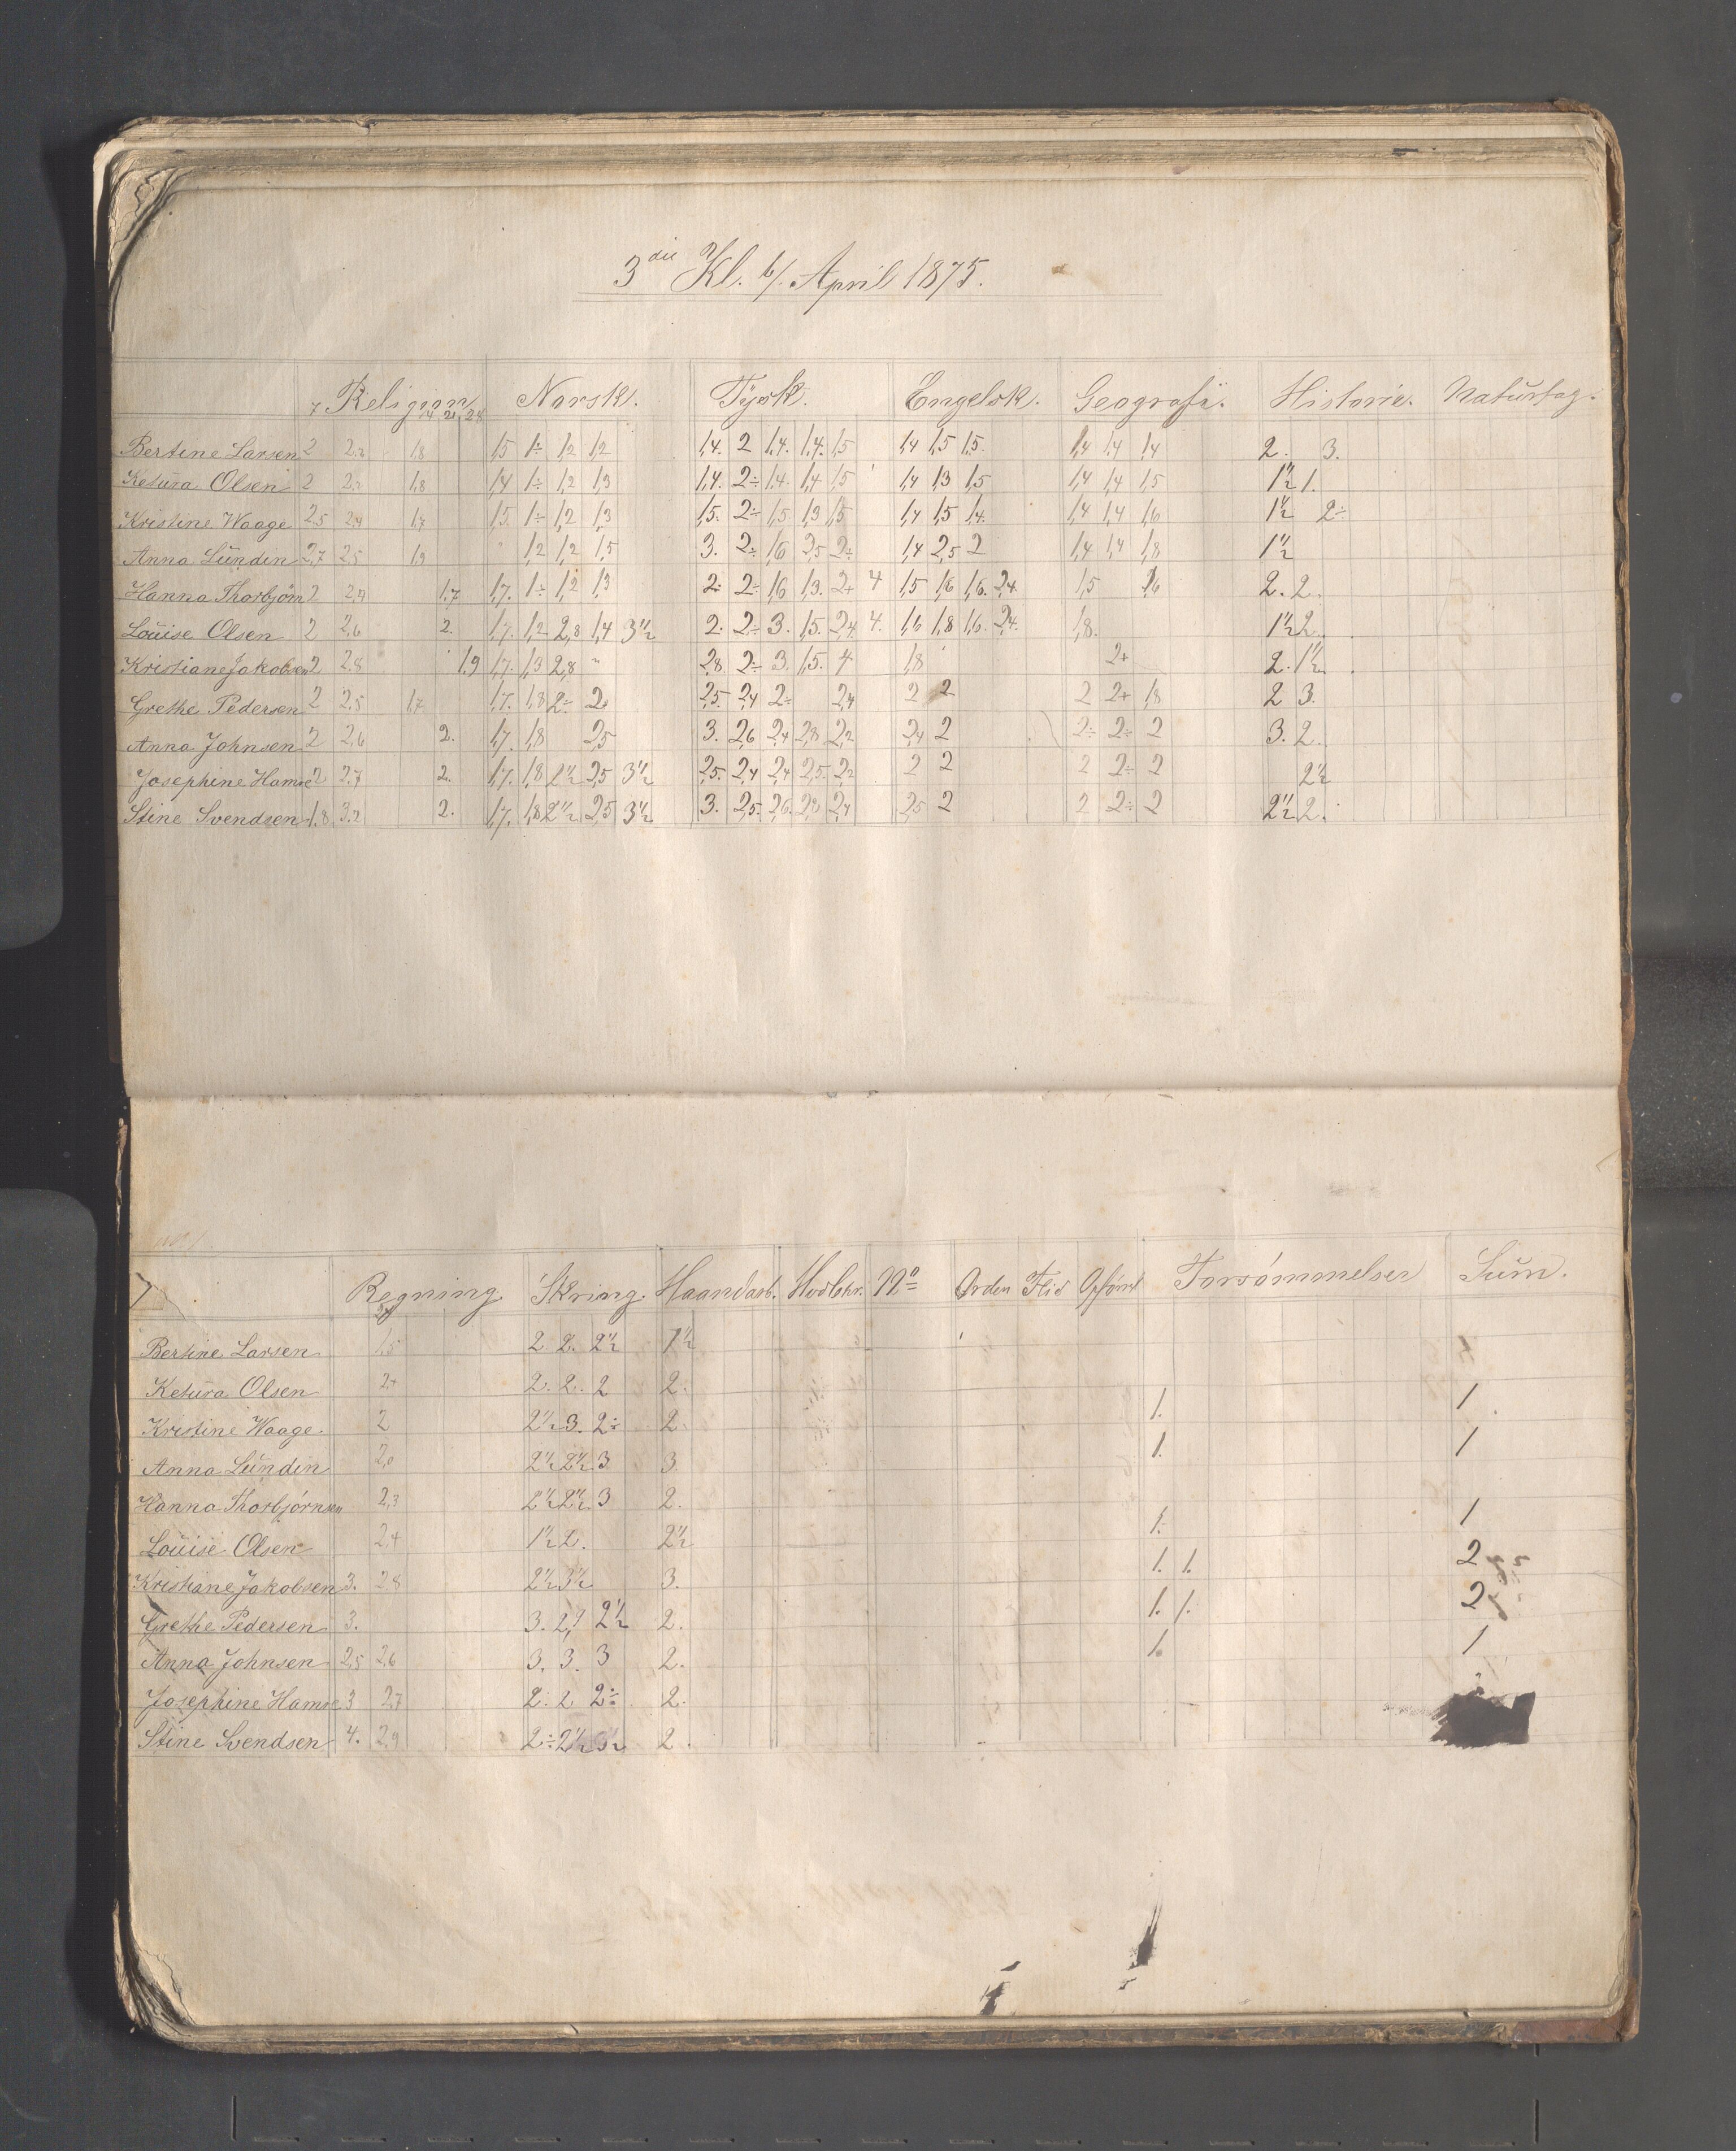 3die Kl. 6/. April 1875.
Religion Norsk. Tysk. Engelsk. Geografi. Historie. Naturfag.
7 14 21 28
Bertine Larsen 2 2.2 1,8 1,5 1÷ 1,2 1,2 1,4. 2 1.4. 1.4. 1,5 1,4 1,5 1,5. 1,4 1,4 1,4 2. 3.
Ketura Olsen 2 2.2 1,8 1,4 1÷ 1,2 1,3 1.4. 2÷ 1.4. 1,4 1,5 1,4 1,3 1,5 1,4 1,4 1,5 1½ 1.
Kristine Waage 2,5 2,4 1,7 1,5. 1÷ 1,2 1,3 1,5. 2÷ 1,5 1,3 1,5 1,4 1,5 1,4. 1,4 1,4 1,6 1½ 2÷
Anna Lundin 2,7 2,5 1,9 " 1,2 1,2 1,5 3. 2÷ 1,6 2,5 2÷ 1,4 2,5 2 1,4 1,4 1,8 1½
Hanna Thorbjörn 2 2,4 1,7 1,7. 1÷ 1,2 1,3 2. 2÷ 1,6 1,3. 2+ 4 1,5 1,6 1,6. 2,4 1,5 1,6 2. 2.
Louise Olsen 2 2,6 2. 1,7. 1,2 2,8 1,4 3½ 2. 2÷ 3. 1,5. 2,4 4. 1,6 1,8 1,6. 2,4. 1,8. 1½ 2.
Kristiane Jakobsen 2 2.8 1.9 1,7. 1,3 2,8 " 2,8. 2÷ 3. 1,5. 4. 1,8 2+ 2. 1½
Grethe Pedersen 2 2.5 1,7 1,7. 1,8 2÷ 2. 2,5. 2,4 2÷ 2,4 2 2 2 2+ 1,8 2 3.
Anna Johnsen 2 2,6 2. 1,7. 1,8 2,5 3. 2,6 2,4 2,8 2,2 2,4 2 2÷ 2÷ 2 3. 2.
Josephine Hamre 2 2.7 2. 1,7. 1,8 2½ 2,5 3½ 2,5. 2,4 2,4 2,5. 2,2 2 2 2 2÷ 2 2½
Stine Svendsen 1.8 3.2 2. 1,7. 1,8 2½ 2,5 3½ 3. 2,5. 2,6. 2,8 2,4 2,5 2 2 2÷ 2 2½ 2.
7 Regning. Skrivng. Haandarb. No Orden Flid Opförsel Forsömmelser Sum.
Bertine Larsen 1,5 2 2. 2½ 1½
Ketura Olsen 2+ 2. 2. 2 2.
Kristine Waage. 2 2½ 3. 2÷ 2. 1. 1
Anna Lundin 2,0 2½ 2½ 3 3. 1. 1
Hanna Thorbjörnsen 2,3 2½ 2½ 3 2.
Louise Olsen 2,4 1½ 2. 2½ 1. 1
Kristiane Jakobsen 3. 2.8 2½ 3½ 3. 1. 1. 2
Grethe Pedersen 3. 3. 2,7 2½ 2. 1. 1. 2
Anna Johnsen 2,5 2,6 3. 3. 3 2. 1. 1
Josephine Hamre 3 2,7 2. 2 2÷ 2.
Stine Svendsen 4. 2,9 2÷ 2½ 3½ 2.